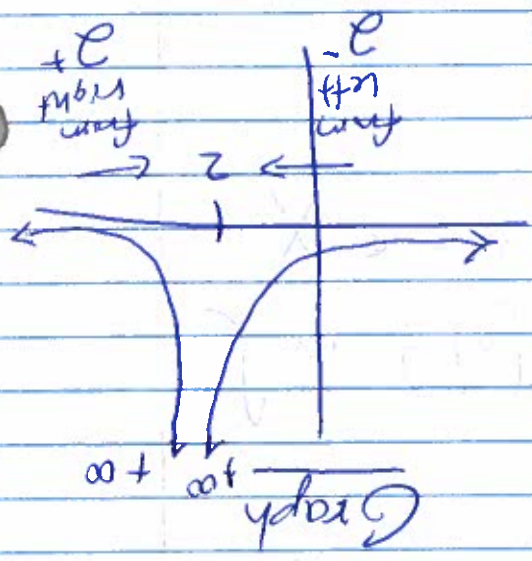 Graph
+∞ +∞
2
from left
2⁻
from right
2⁺